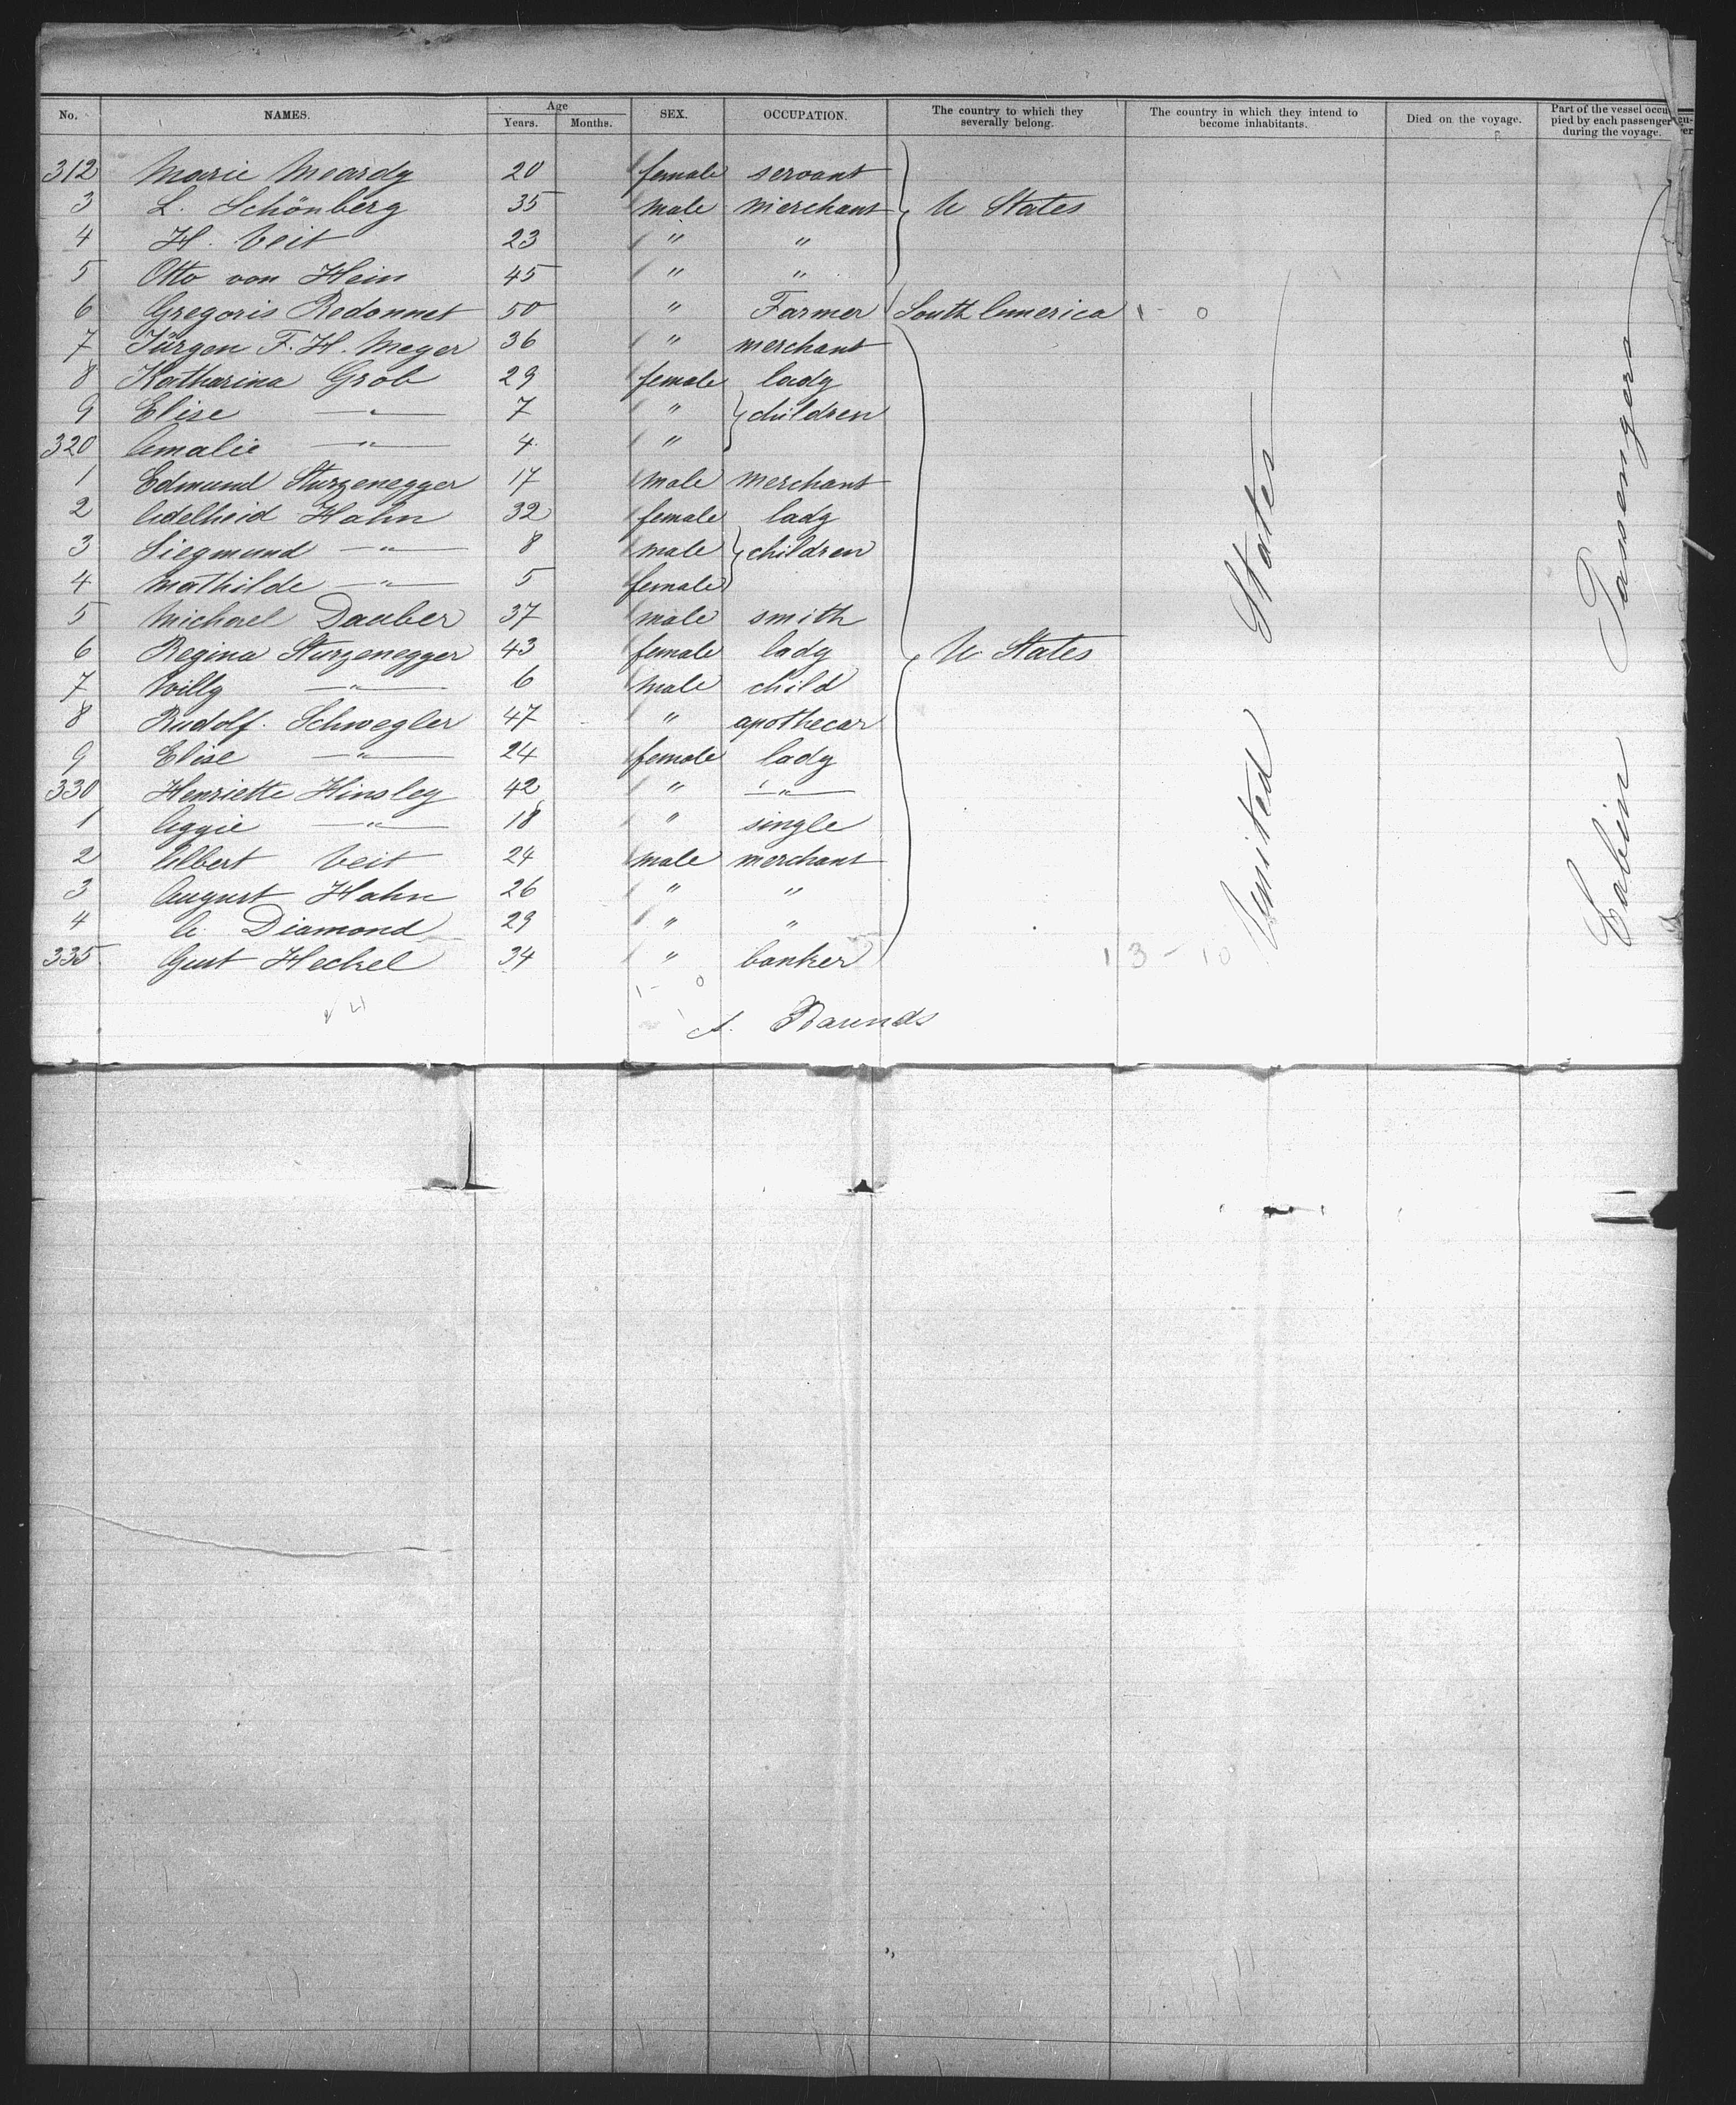 No. NAMES. Age Years. Months. SEX. OCCUPATION. The country to which they severally belong. The country in which they intend to become inhabitants. Died on the voyage. Part of the vessel occupied by each passenger during the voyage.
312 Marie Meardy 20 female servant
3 L. Schönberg 35 male merchant U States
4 H. Veit 23 " "
5 Otto von Hein 45 " "
6 Gregoris Redonnet 50 " Farmer South America 1 - 0
7 Jürgen F. H. Meyer 36 " merchant
8 Katharina Grob 29 female lady
9 Elise —"— 7 " children
320 Amalie —"— 4 "
1 Edmund Sturzenegger 17 male merchant
2 Adelheid Hahn 32 female lady
3 Siegmund —"— 8 male children
4 Mathilde —"— 5 female
5 Michael Dauber 37 male smith
6 Regina Sturzenegger 43 female lady U States
7 Willy —"— 6 male child
8 Rudolf. Schwegler 47 " apothecar
9 Elise —"— 24 female lady
330 Henriette Hinsley 42 " —"—
1 Aggie —"— 18 " single
2 Albert Veit 24 male merchant
3 August Hahn 26 " "
4 A. Diamond 29 " "
335 Gust Heckel 34 " banker
13 - 10
1 - 0
A. Barends
United States
Cabin Passengers